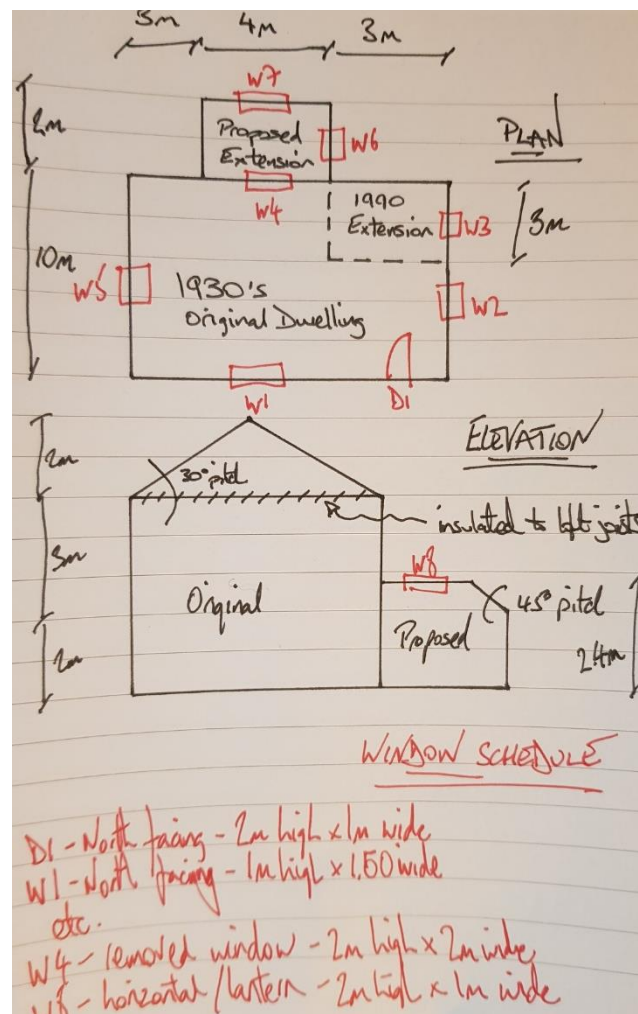 3m 4m 3m
W7
2m Proposed W6 PLAN
Extension
W4 1990
Extension W3 3m
10m W5 1930's W2
Original Dwelling
W1 D1
ELEVATION
2m 30° pitch
insulated to loft joists
3m W8
Original 45° pitch
2m Proposed 2.4m
WINDOW SCHEDULE
D1 - North facing - 2m high x 1m wide
W1 - North facing - 1m high x 1.50 wide
etc.
W4 - removed window - 2m high x 2m wide
W8 - horizontal/lantern - 2m high x 1m wide